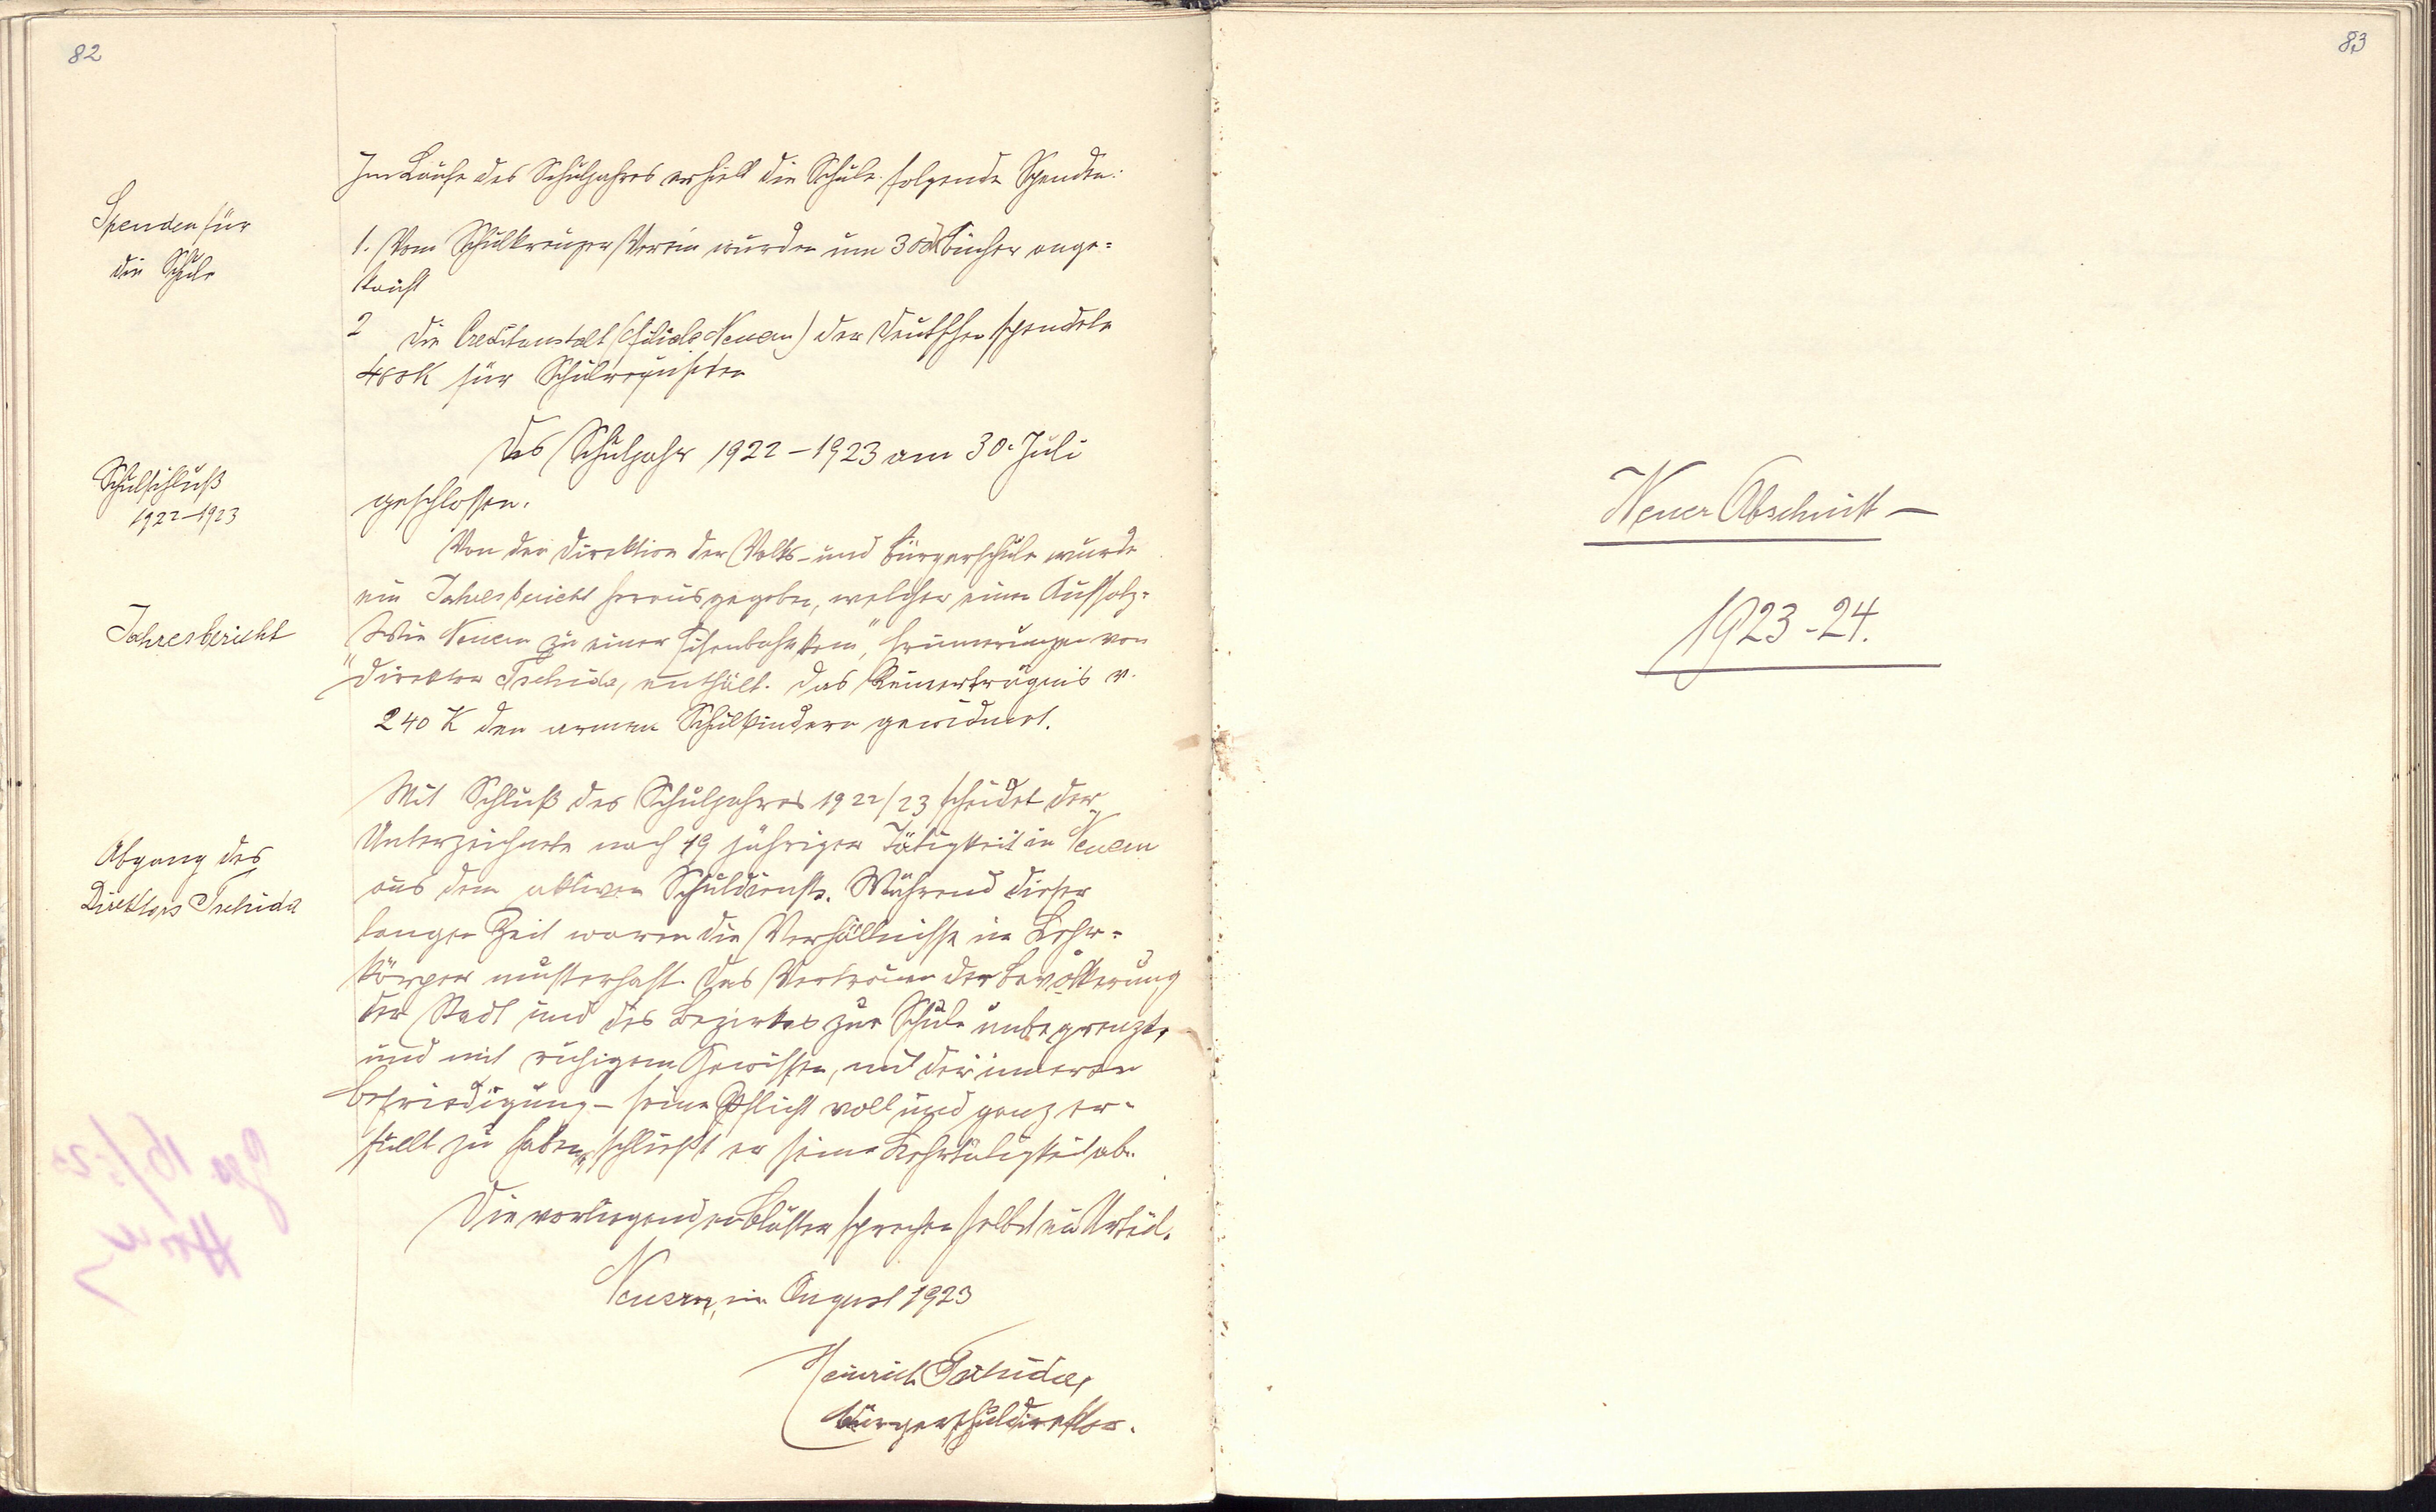 82
Spenden für
die Schule
Im Laufe des Schuljahres erhielt die Schule folgende Spenden:
1. Vom Schulkreuzer Verein wurden um 300K Bücher ange=
kauft
2 Die Creditanstalt (Filiale Neuern) der Deutschen spendete
400K für Schulrequisiten
Schulschluß
1922-1923
Das Schuljahr 1922-1923 am 30. Juli
geschlossen.
Jahresbericht
Von der Direktion der Volks- und Bürgerschule wurde
ein Jahresbericht herausgegeben, welcher einen Aufsatz=
"Wie Neuern zu einer Eisenbahn kam", Erinnerungen von
Direktor Tschida, enthält. Das Reinerträgnis v.
240 K den armen Schulkindern gewidmet.
Abgang des
Direktors Tschida
Mit Schluß des Schuljahres 1922/23 scheidet der
Unterzeichnete nach 19 jähriger Tätigkeit in Neuern
aus dem aktiven Schuldienste. Während dieser
langen Zeit waren die Verhältnisse im Lehr=
körper musterhaft. Das Vertrauen der Bevölkerung
der Stadt und des Bezirkes zur Schule unbegrenzt,
und mit ruhigem Gewissen, mit der inneren
Befriedigung - seine Pflicht voll und ganz er=
füllt zu haben, schließt er seine Lehrtätigkeit ab.
Die vorliegenden Blätter sprechen selbst ein Urteil.
Neuern, im August 1923
Heinrich Tschida,
Bürgerschuldirektor.
83
Neuer Abschnitt -
1923-24.